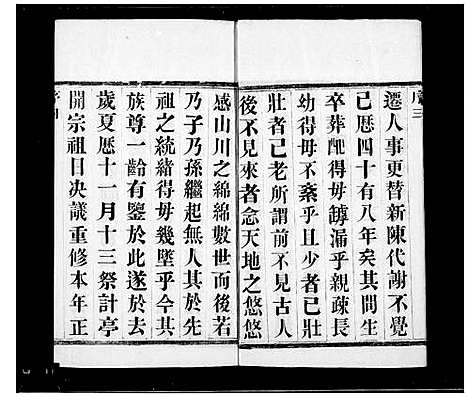 序三
遷人事更替新陳代謝不覺
已歷四十有八年矣其間生
卒葬配得毋罅漏乎親疎長
幼得毋不紊乎且少者已壯
壯者已老所謂前不見古人
後不見來者念天地之悠悠
感山川之綿綿數世而後若
乃子乃孫繼起無人其於先
祖之統緒得毋幾墜乎今其
族尊一齡有鑒於此遂於去
歲夏歷十一月十三祭計亭
開宗祖日决議重修本年正